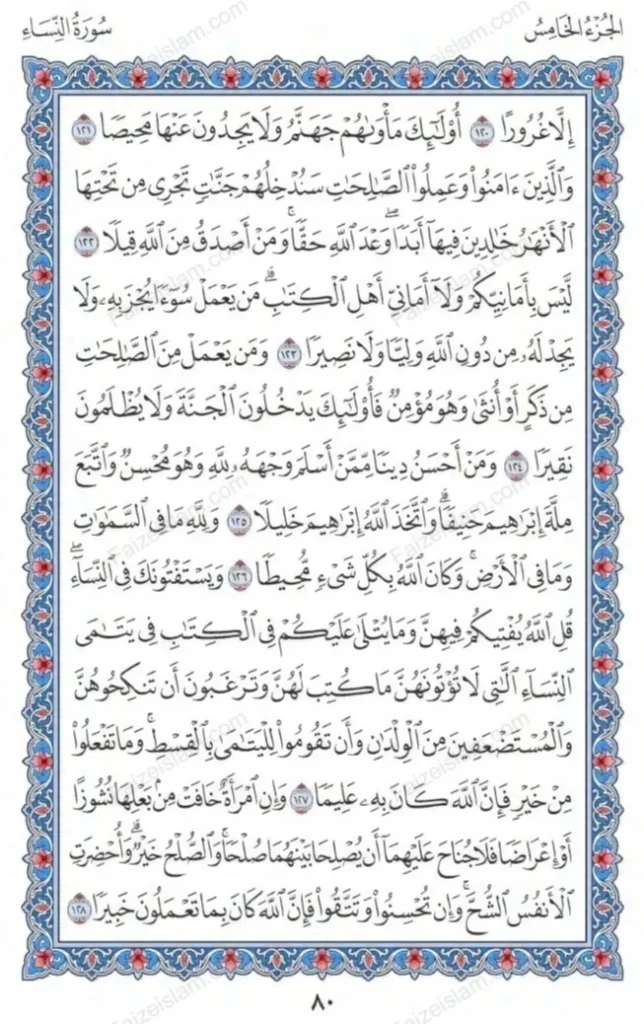 الجُزْءُ الخَامِسُ
سُورَةُ النِّسَاءِ
إِلَّا غُرُورًا ١٢٠ أُوْلَٰٓئِكَ مَأْوَىٰهُمْ جَهَنَّمُ وَلَا يَجِدُونَ عَنْهَا مَحِيصًا ١٢١
وَٱلَّذِينَ ءَامَنُوا۟ وَعَمِلُوا۟ ٱلصَّٰلِحَٰتِ سَنُدْخِلُهُمْ جَنَّٰتٍ تَجْرِى مِن تَحْتِهَا
ٱلْأَنْهَٰرُ خَٰلِدِينَ فِيهَآ أَبَدًاۖ وَعْدَ ٱللَّهِ حَقًّاۚ وَمَنْ أَصْدَقُ مِنَ ٱللَّهِ قِيلًا ١٢٢
لَّيْسَ بِأَمَانِيِّكُمْ وَلَآ أَمَانِىِّ أَهْلِ ٱلْكِتَٰبِۗ مَن يَعْمَلْ سُوٓءًا يُجْزَ بِهِۦ وَلَا
يَجِدْ لَهُۥ مِن دُونِ ٱللَّهِ وَلِيًّا وَلَا نَصِيرًا ١٢٣ وَمَن يَعْمَلْ مِنَ ٱلصَّٰلِحَٰتِ
مِن ذَكَرٍ أَوْ أُنثَىٰ وَهُوَ مُؤْمِنٌ فَأُو۟لَٰٓئِكَ يَدْخُلُونَ ٱلْجَنَّةَ وَلَا يُظْلَمُونَ
نَقِيرًا ١٢٤ وَمَنْ أَحْسَنُ دِينًا مِّمَّنْ أَسْلَمَ وَجْهَهُۥ لِلَّهِ وَهُوَ مُحْسِنٌ وَٱتَّبَعَ
مِلَّةَ إِبْرَٰهِيمَ حَنِيفًاۗ وَٱتَّخَذَ ٱللَّهُ إِبْرَٰهِيمَ خَلِيلًا ١٢٥ وَلِلَّهِ مَا فِى ٱلسَّمَٰوَٰتِ
وَمَا فِى ٱلْأَرْضِۚ وَكَانَ ٱللَّهُ بِكُلِّ شَىْءٍ مُّحِيطًا ١٢٦ وَيَسْتَفْتُونَكَ فِى ٱلنِّسَآءِۖ
قُلِ ٱللَّهُ يُفْتِيكُمْ فِيهِنَّ وَمَا يُتْلَىٰ عَلَيْكُمْ فِى ٱلْكِتَٰبِ فِى يَتَٰمَى
ٱلنِّسَآءِ ٱلَّٰتِى لَا تُؤْتُونَهُنَّ مَا كُتِبَ لَهُنَّ وَتَرْغَبُونَ أَن تَنكِحُوهُنَّ
وَٱلْمُسْتَضْعَفِينَ مِنَ ٱلْوِلْدَٰنِ وَأَن تَقُومُوا۟ لِلْيَتَٰمَىٰ بِٱلْقِسْطِۚ وَمَا تَفْعَلُوا۟
مِنْ خَيْرٍ فَإِنَّ ٱللَّهَ كَانَ بِهِۦ عَلِيمًا ١٢٧ وَإِنِ ٱمْرَأَةٌ خَافَتْ مِنۢ بَعْلِهَا نُشُوزًا
أَوْ إِعْرَاضًا فَلَا جُنَاحَ عَلَيْهِمَآ أَن يُصْلِحَا بَيْنَهُمَا صُلْحًاۚ وَٱلصُّلْحُ خَيْرٌۗ وَأُحْضِرَتِ
ٱلْأَنفُسُ ٱلشُّحَّۚ وَإِن تُحْسِنُوا۟ وَتَتَّقُوا۟ فَإِنَّ ٱللَّهَ كَانَ بِمَا تَعْمَلُونَ خَبِيرًا ١٢٨
٨٠
Faizeislam.com